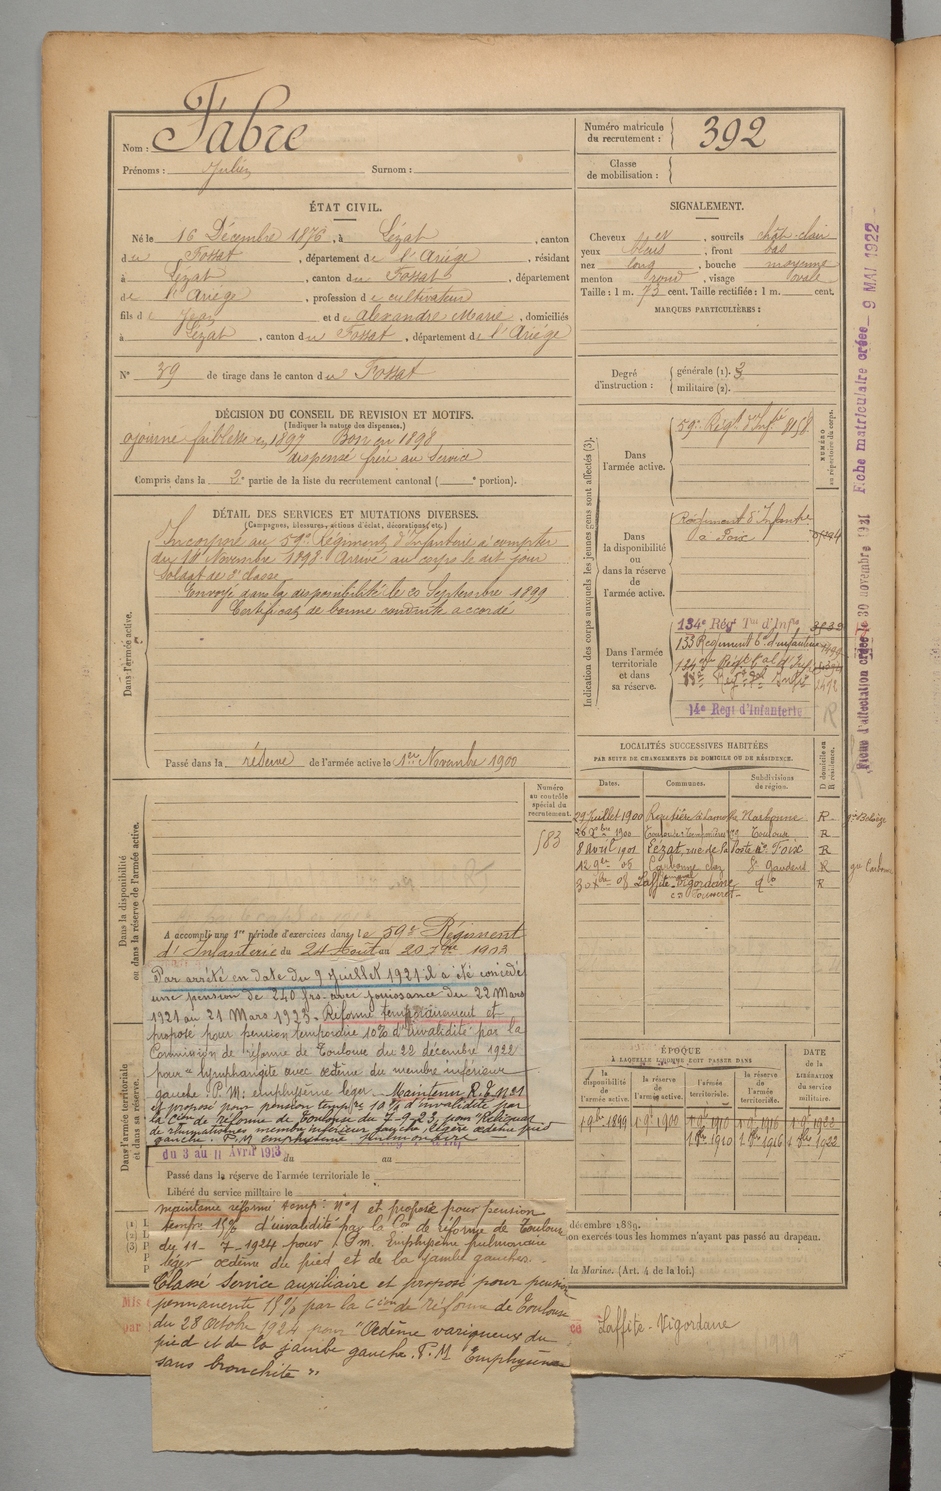 Nom : Fabre
Prénoms : Julien Surnom :
Numéro matricule du recrutement : 392
Classe de mobilisation :
ÉTAT CIVIL.
Né le 16 Décembre 1876, à Lézat, canton
du Fossat, département de l'Ariège, résidant
à Lézat, canton du Fossat, département
de l'Ariège, profession de cultivateur
fils de Jean et de Alexandre Marie, domiciliés
à Lézat, canton du Fossat, département de l'Ariège
N° 39 de tirage dans le canton du Fossat
SIGNALEMENT.
Cheveux et sourcils chât-clair
yeux bleus, front bas
nez long, bouche moyenne
menton rond, visage ovale
Taille : 1 m. 73 cent. Taille rectifiée : 1 m. cent.
MARQUES PARTICULIÈRES :
Degré d'instruction : générale (1). 3
militaire (2).
DÉCISION DU CONSEIL DE REVISION ET MOTIFS.
(Indiquer la nature des dispenses.)
ajourné faiblesse en 1897 Bon en 1898
dispensé frère au service
Compris dans la 2e partie de la liste du recrutement cantonal ( e portion).
DÉTAIL DES SERVICES ET MUTATIONS DIVERSES.
(Campagnes, blessures, actions d'éclat, décorations, etc.)
Dans l'armée active.
Incorporé au 59e Régiment d'Infanterie à compter
du 14 Novembre 1898. Arrivé au corps le dit jour
soldat de 2e classe
Envoyé dans la disponibilité le 20 Septembre 1899
Certificat de bonne conduite accordé
Passé dans la réserve de l'armée active le 1er Novembre 1900
Indication des corps auxquels les jeunes gens sont affectés (3).
NUMÉRO au répertoire du corps.
Dans l'armée active.
59e Régt d'Infie 8158
Dans la disponibilité ou dans la réserve de l'armée active.
Régiment d'Infanterie
à Foix
Dans l'armée territoriale et dans sa réserve.
134e Régt Tal d'Infie
133 Régiment Tal d'infanterie
134e Régt Tal d'Inf
14e Régt d'Infanterie R
Fiche d'attestation créée le 30 novembre 1921
Fiche matriculaire créée 9 MAI 1922
LOCALITÉS SUCCESSIVES HABITÉES
PAR SUITE DE CHANGEMENTS DE DOMICILE OU DE RÉSIDENCE.
Dates. Communes. Subdivisions de région. D domicile ou R résidence.
29 Juillet 1900 Narbonne R
26 Xbre 1900 Toulouse Toulouse R
8 Avril 1901 Lézat, rue de la Poste Foix R
12 9bre 05 Carbonne St Gaudens R
30 Xbre 08 Laffite-Vigordane do R
Numéro au contrôle spécial du recrutement.
583
Dans la disponibilité ou dans la réserve de l'armée active.
A accompli une 1re période d'exercices dans le 59e Régiment
d'Infanterie du 24 Août au 20 7bre 1903
Par arrêté en date du 9 Juillet 1921 il a été concédé
une pension de 240 frs avec jouissance du 22 Mars
1921 au 21 Mars 1923. Réformé temporairement et
proposé pour pension temporaire 10% d'invalidité par la
Commission de réforme de Toulouse du 22 décembre 1922
pour "lymphangite avec oedème du membre inférieur
gauche. P.M. emphysème léger. Maintenu R.T. N°1
et proposé pour pension tempre 10% d'invalidité par
la Cion de réforme de Toulouse du 7-9-23 pour Reliquat
de rhumatismes membre inférieur gauche légère oedème pied
gauche. P.M emphysème pulmonaire
Dans l'armée territoriale et dans sa réserve.
du 3 au 11 Avril 1913 du au
Passé dans la réserve de l'armée territoriale le
Libéré du service militaire le
ÉPOQUE
À LAQUELLE L'HOMME DOIT PASSER DANS
la disponibilité de l'armée active. la réserve de l'armée active. l'armée territoriale. la réserve de l'armée territoriale. DATE de la LIBÉRATION du service militaire.
1 9bre 1899 1 9bre 1900 1 9bre 1910 1 9bre 1916 1 9bre 1922
1 8bre 1910 1 8bre 1916 1 8bre 1922
maintenu réformé temp: n°1 et proposé pour pension
tempre 15% d'invalidité par la Con de réforme de Toulouse
du 11-7-1924 pour P.M. Emphysème pulmonaire
léger oedème du pied et de la jambe gauches.
Classé Service auxiliaire et proposé pour pension
permanente 15% par la Cion de réforme de Toulouse
du 28 Octobre 1924 pour "Oedème variqueux du
pied et de la jambe gauche. P.M Emphysème
sans bronchite"
décembre 1889.
on exercés tous les hommes n'ayant pas passé au drapeau.
la Marine. (Art. 4 de la loi.)
Laffite-Vigordane